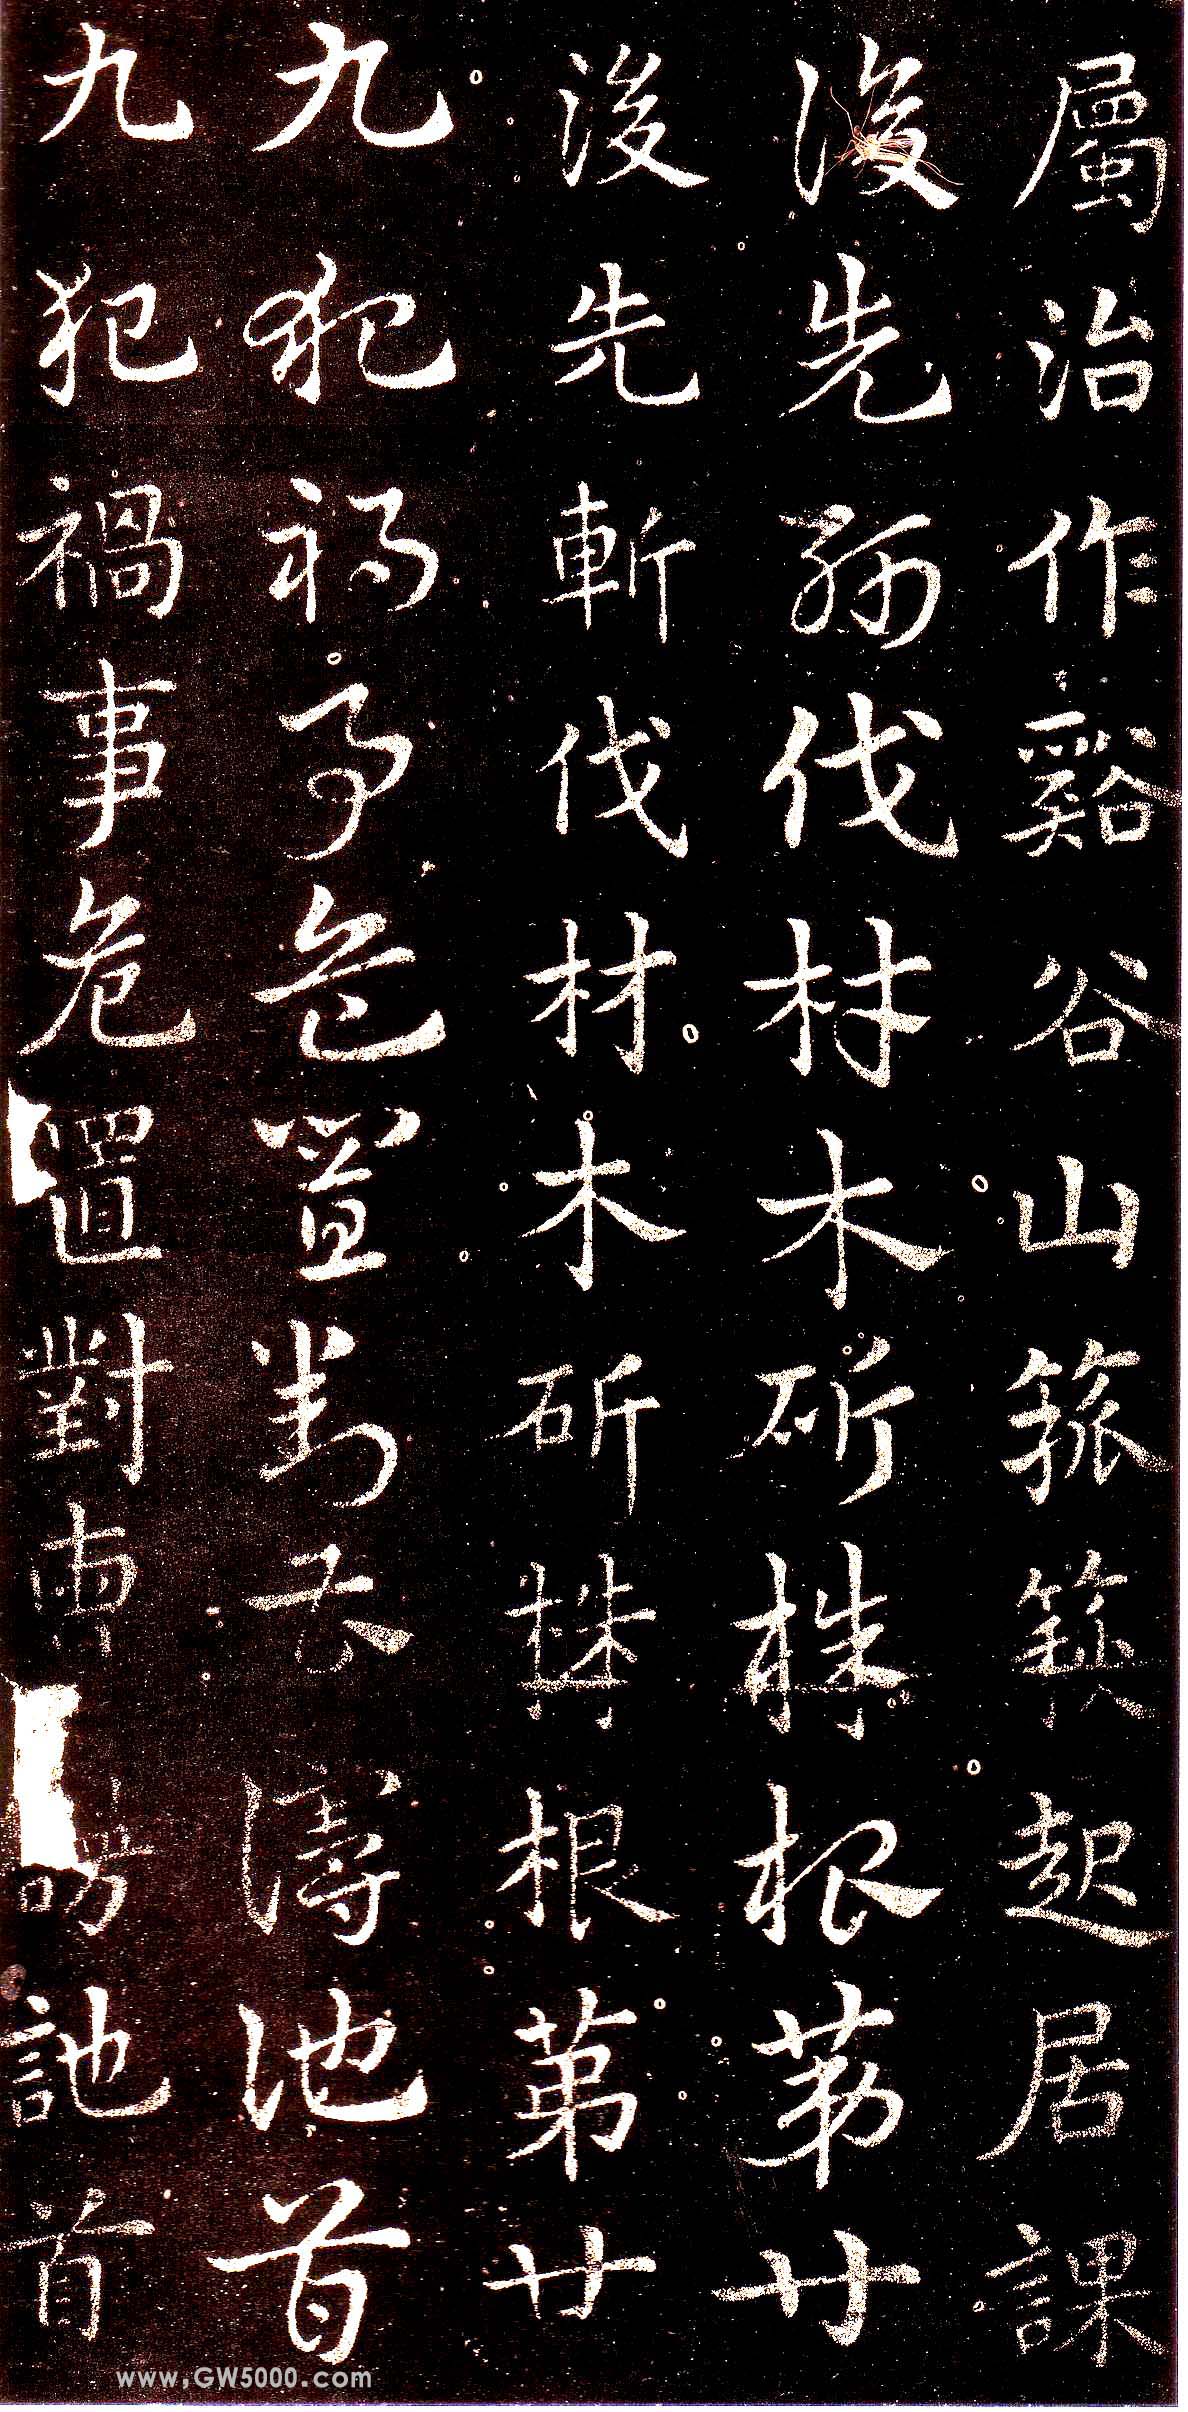 屬治作谿谷山箛簇起居課
後先斬伐材木斫株根第廿
後先斬伐材木斫株根第廿
九犯禍事危置對曹訑首
九犯禍事危置對曹訑首
www.GW5000.com